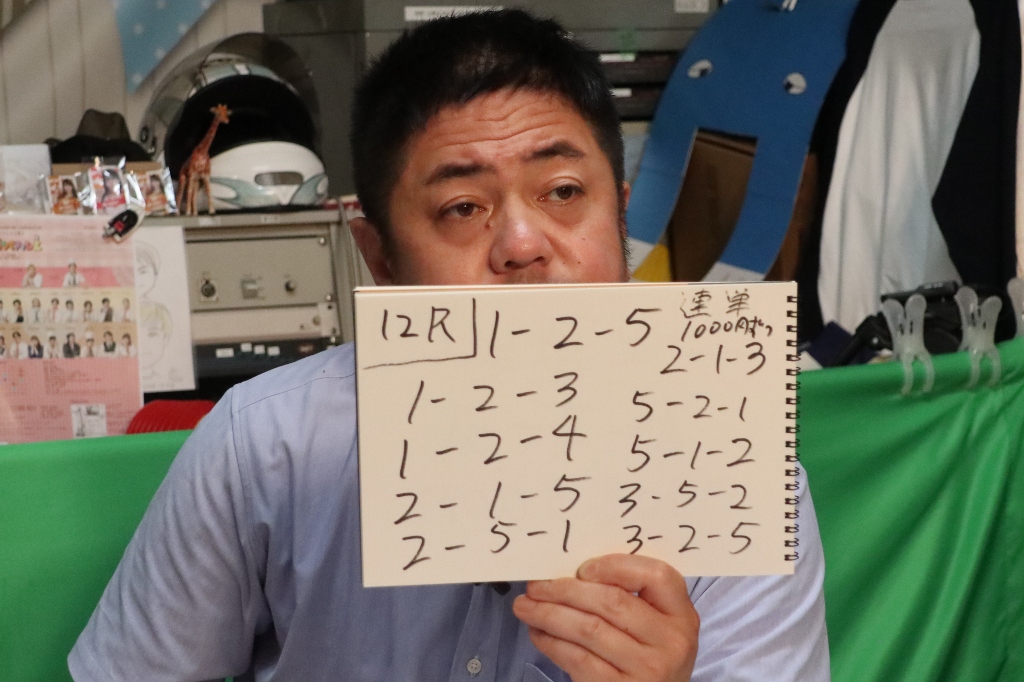 12R
1-2-5
連単
1000円ずつ
1-2-3
1-2-4
2-1-5
2-5-1
2-1-3
5-2-1
5-1-2
3-5-2
3-2-5